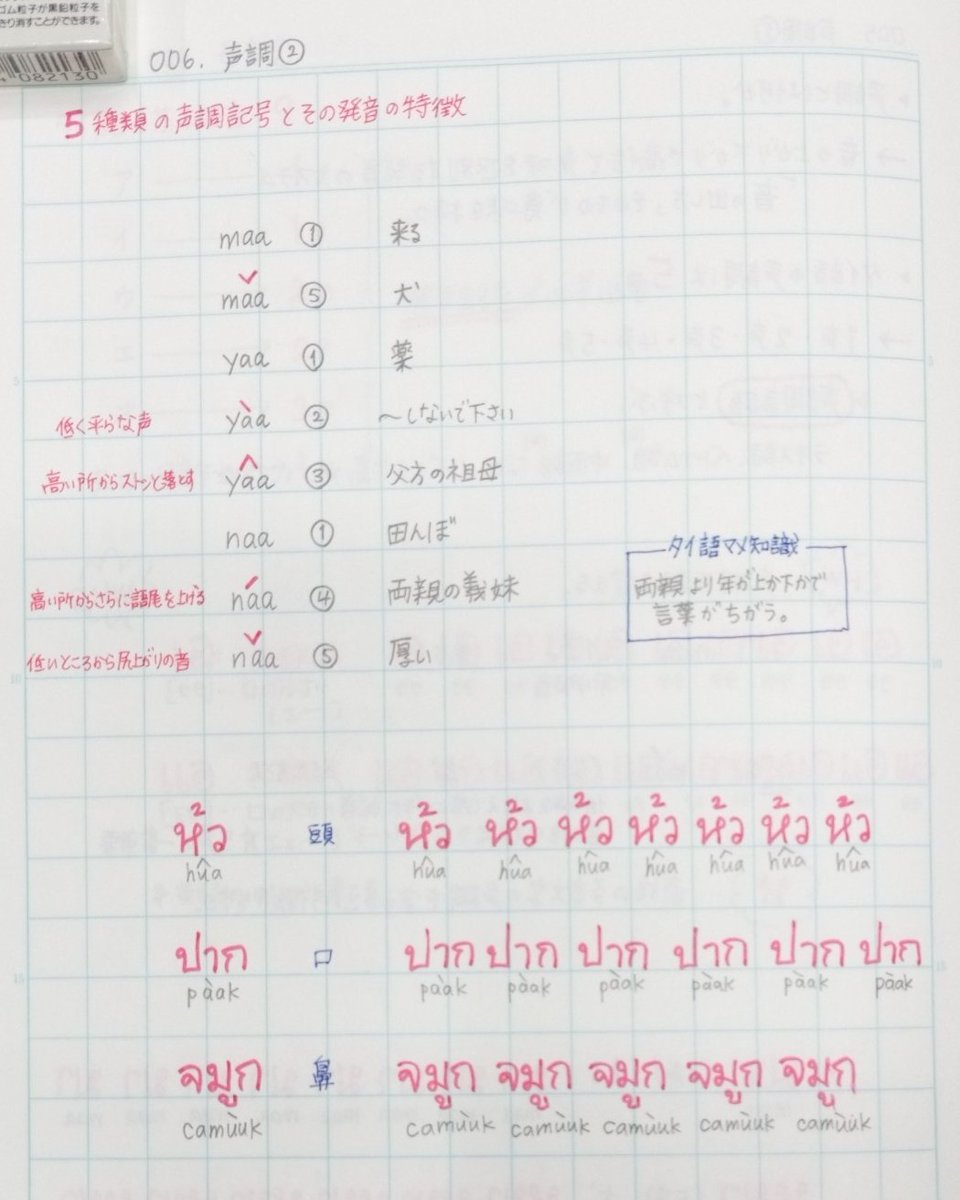 ゴム粒子が黒鉛粒子を
きり消すことができます。
4 082130
006. 声調②
5種類の声調記号とその発音の特徴
maa ① 来る
mǎa ⑤ 犬
yaa ① 薬
低く平らな声 yàa ② 〜しないで下さい
高い所からストンと落とす yâa ③ 父方の祖母
naa ① 田んぼ
タイ語マメ知識
高い所からさらに語尾を上げる náa ④ 両親の義妹
両親より年が上か下かで
言葉がちがう。
低いところから尻上がりの音 nǎa ⑤ 厚い
หัว 頭 หัว หัว หัว หัว หัว หัว หัว
hûa hûa hûa hûa hûa hûa hûa hûa
ปาก 口 ปาก ปาก ปาก ปาก ปาก ปาก
pàak pàak pàak pàak pàak pàak pàak
จมูก 鼻 จมูก จมูก จมูก จมูก จมูก
camùuk camùuk camùuk camùuk camùuk camùuk